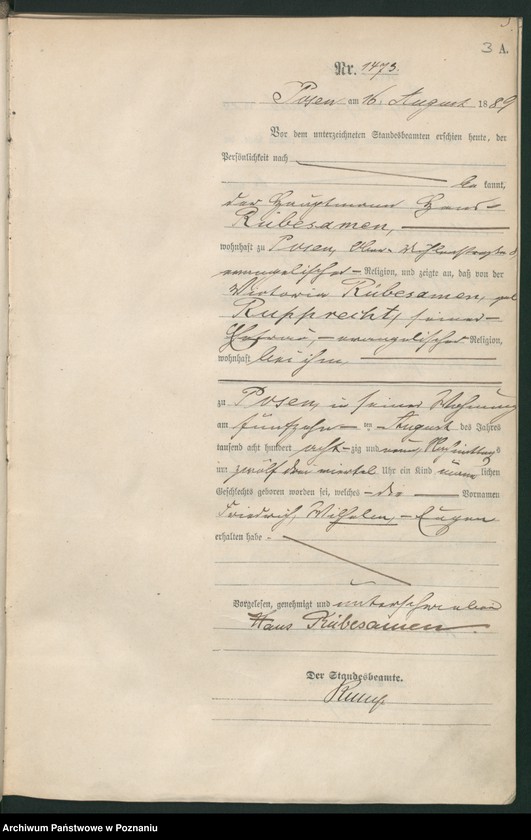 3 A.
Nr. 1473.
Posen am 16. August 1889
Vor dem unterzeichneten Standesbeamten erschien heute, der
Persönlichkeit nach
be kannt,
der Hauptmann Hans
Rübesamen,
wohnhaft zu Posen,
evangelischer Religion, und zeigte an, daß von der
Victoria Rübesamen, geb
Rupprecht, seiner
Ehefrau, evangelischer Religion,
wohnhaft bei ihm,
zu Posen, in seiner Wohnung
am fünfzehn ten August des Jahres
tausend acht hundert acht zig und neun Nachmittags
um zwölf drei viertel Uhr ein Kind männ lichen
Geschlechts geboren worden sei, welches die Vornamen
Friedrich, Wilhelm, Eugen
erhalten habe
Vorgelesen, genehmigt und unterschrieben
Hans Rübesamen.
Der Standesbeamte.
Archiwum Państwowe w Poznaniu